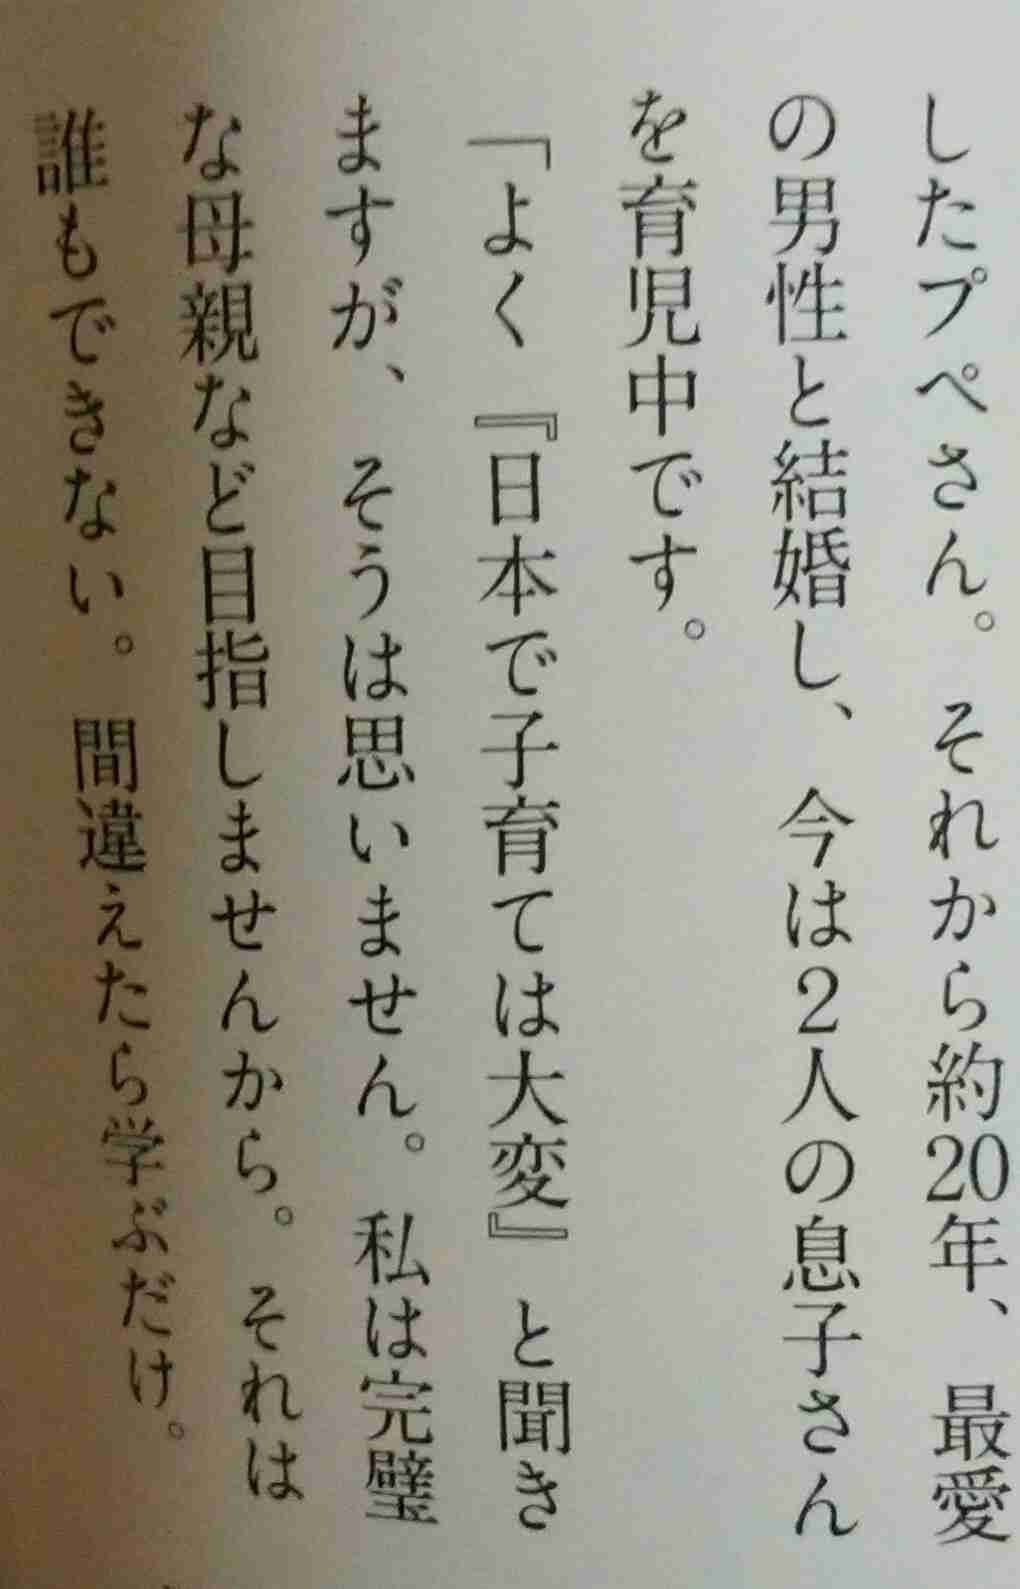 したプペさん。それから約20年、最愛
の男性と結婚し、今は2人の息子さん
を育児中です。
「よく『日本で子育ては大変』と聞き
ますが、そうは思いません。私は完璧
な母親など目指しませんから。それは
誰もできない。間違えたら学ぶだけ。